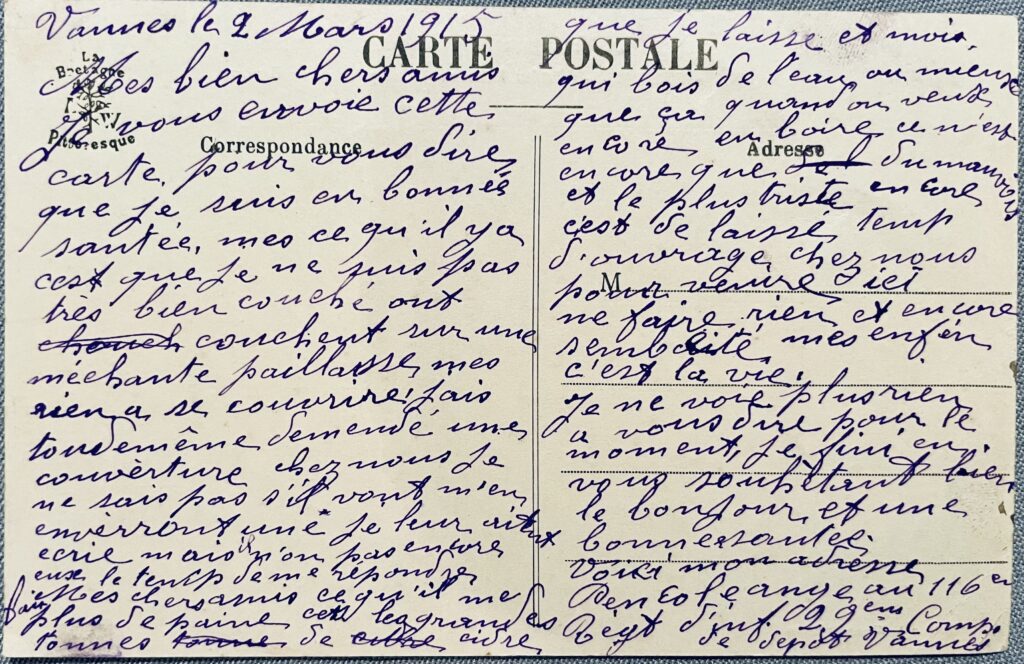 Vannes le 2 Mars 1915
CARTE POSTALE
La
Bretagne
Pittoresque
Correspondance
Adresse
M
Mes bien chers amis
Je vous envoie cette
carte pour vous dire
que je suis en bonnes
santée, mes ce qu'il y a
cest que je ne suis pas
très bien couché ont
couchent sur une
méchante paillasse, mes
rien a se couvrire, jais
toudemême demendé une
couverture chez nous je
ne sais pas s'il vont m'en
enverront une je leur
ecrie mais is n'on pas encore
eux le temp de me répondre
Mes chers amis ce qu'il me
fai plus de paine cest les grandes
tonnes tonne de cidre
que je laisse et mois,
qui bois de l'eau ou mieux
que ça quand on veux
encore en boire ce n'est
encore que du mauvais
et le plus triste encore
c'est de laissé temp
d'ouvrage chez nous
pour venire ici
ne faire rien et encore
mes enfin
c'est la vie.
Je ne voie plus rien
a vous dire pour le
moment, je fini en
vous souhètant bien
le bonjour et une
bonne santée
Voici mon adresse
ange au 116em
Régt d'inf 29em Comp.
de dépot Vannes